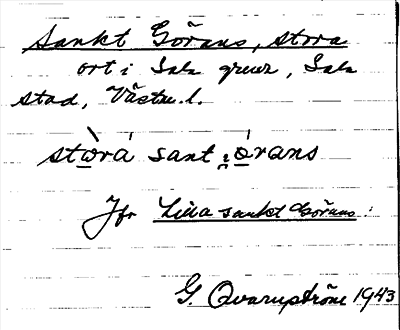 Sankt Görans, stora
ort i Sala gruva, Sala
stad, Västm.l.
stòrá sant ɟö́rans
Jfr Lilla sankt Görans.
G. Qvarnström 1943